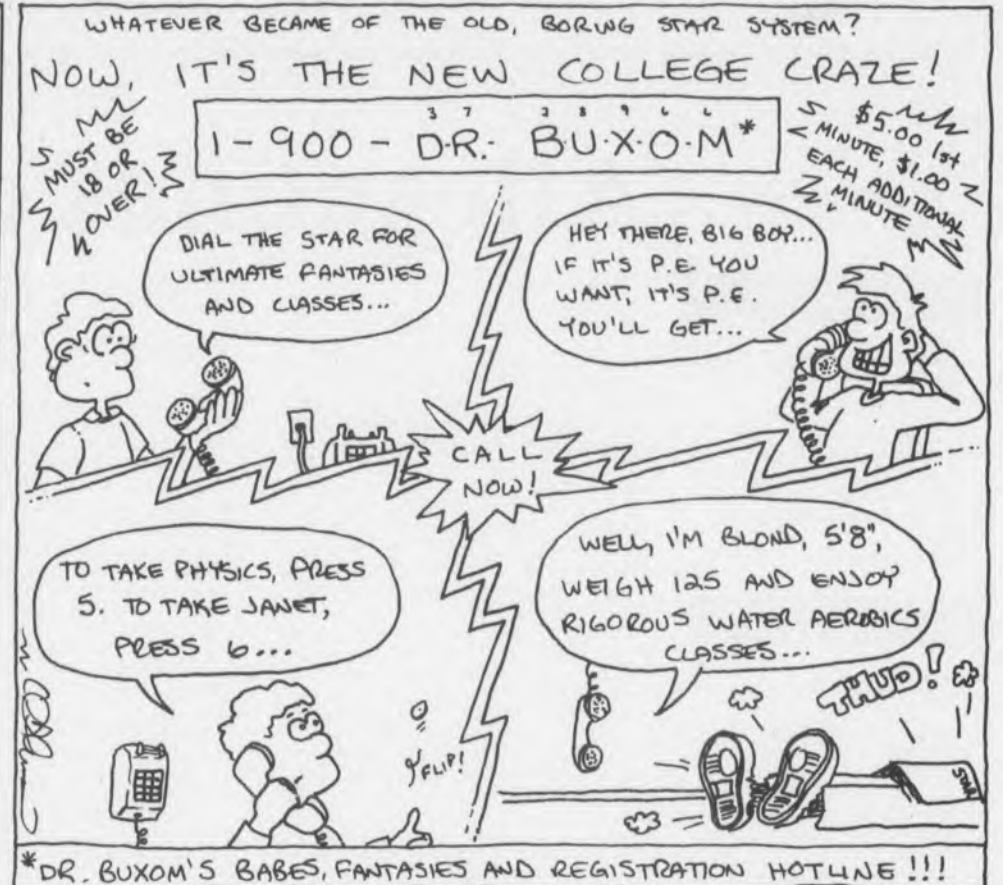 WHATEVER BECAME OF THE OLD, BORING STAR SYSTEM?
NOW, IT'S THE NEW COLLEGE CRAZE!
MUST BE
18 OR
OVER!
3 7 2 8 9 6 6
1-900-D.R. B.U.X.O.M*
$5.00 1st
MINUTE, $1.00
EACH ADDITIONAL
MINUTE
DIAL THE STAR FOR
ULTIMATE FANTASIES
AND CLASSES...
HEY THERE, BIG BOY...
IF IT'S P.E. YOU
WANT, IT'S P.E.
YOU'LL GET...
CALL
NOW!
TO TAKE PHYSICS, PRESS
5. TO TAKE JANET,
PRESS 6...
FLIP!
WELL, I'M BLOND, 5'8",
WEIGH 125 AND ENJOY
RIGOROUS WATER AEROBICS
CLASSES...
THUD!
STAR
*DR. BUXOM'S BABES, FANTASIES AND REGISTRATION HOTLINE!!!